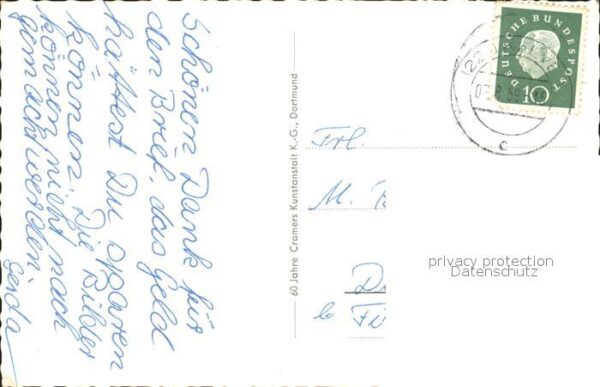 Schönen Dank für
den Brief. das Geld
hättest Du sparen
können. Die Bilder
können nicht nach
gemacht werden.
Gerda
60 Jahre Cramers Kunstanstalt K.-G., Dortmund
DEUTSCHE BUNDESPOST
10
c
Frl.
M.
privacy protection
Datenschutz
b.